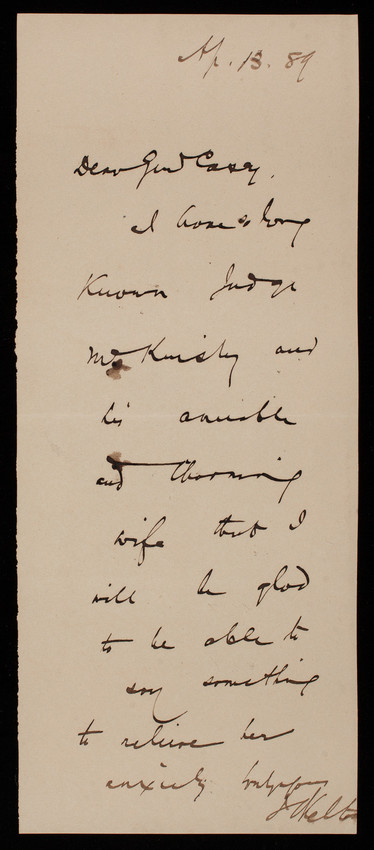 Ap. 13. 89
Dear Genl Casey,
I have so long
Known Judge
McKinsly and
his amiable
and charming
wife that I
will be glad
to be able to
say something
to relieve her
anxiety
J C Kelto